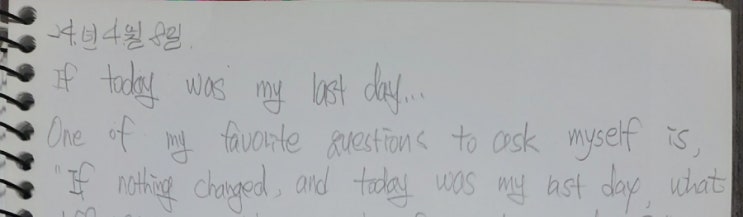 24년 4월 8일.
If today was my last day...
One of my favorite questions to ask myself is,
"If nothing changed, and today was my last day, what